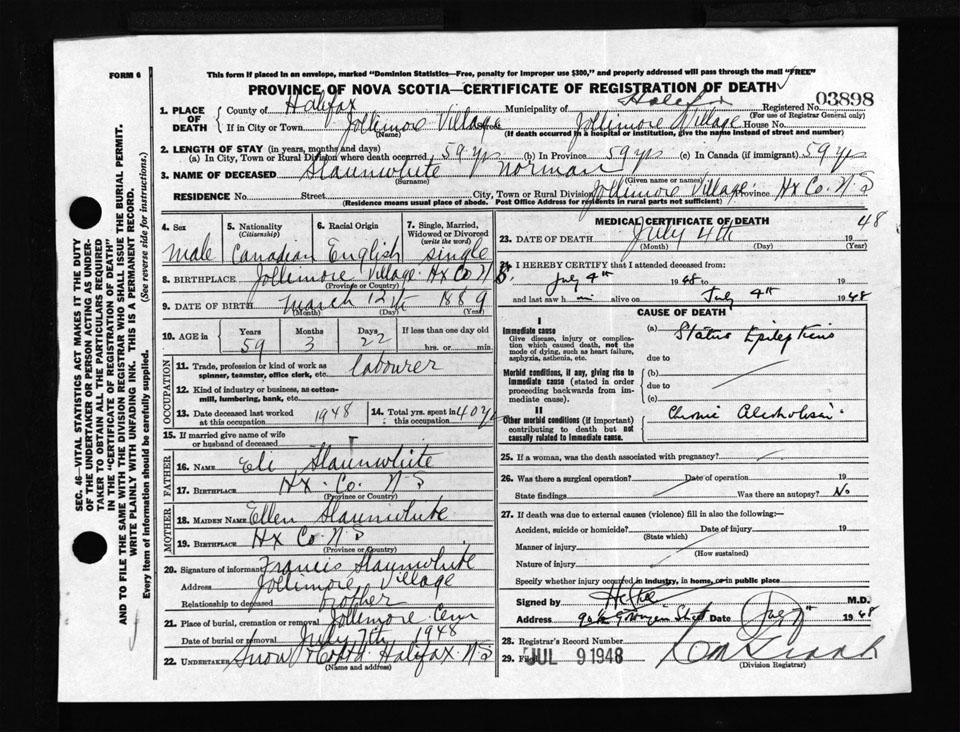 FORM 6
This form if placed in an envelope, marked "Dominion Statistics—Free, penalty for improper use $300," and properly addressed will pass through the mail "FREE"
PROVINCE OF NOVA SCOTIA—CERTIFICATE OF REGISTRATION OF DEATH
1. PLACE OF DEATH
County of Halifax Municipality of Halifax Registered No. 03898
(For use of Registrar General only)
If in City or Town Jollimore Village Street Jollimore Village House No.
(Name) (If death occurred in a hospital or institution, give the name instead of street and number)
2. LENGTH OF STAY (in years, months and days)
(a) In City, Town or Rural Division where death occurred 59 yrs (b) In Province 59 yrs (c) In Canada (if immigrant) 59 yrs
3. NAME OF DECEASED Slaunwhite Norman
(Surname) (Given name or names)
RESIDENCE No. Street City, Town or Rural Division Jollimore Village Province Hx Co. N.S
(Residence means usual place of abode. Post Office Address for residents in rural parts not sufficient)
4. Sex
male
5. Nationality
(Citizenship)
Canadian
6. Racial Origin
English
7. Single, Married, Widowed or Divorced
(write the word)
single
8. BIRTHPLACE Jollimore Village Hx Co N.S.
(Province or Country)
9. DATE OF BIRTH March 12th 1889
(Month) (Day) (Year)
10. AGE in Years Months Days If less than one day
59 3 22 hrs. or min.
OCCUPATION
11. Trade, profession or kind of work as spinner, teamster, office clerk, etc. labourer
12. Kind of industry or business, as cotton-mill, lumbering, bank, etc.
13. Date deceased last worked at this occupation 1948
14. Total yrs. spent in this occupation 40 yrs
15. If married give name of wife or husband of deceased
FATHER
16. NAME Eli Slaunwhite
17. BIRTHPLACE Hx. Co. N.S
(Province or Country)
MOTHER
18. MAIDEN NAME Ellen Slaunwhite
19. BIRTHPLACE Hx Co. N.S
(Province or Country)
20. Signature of informant Francis Slaunwhite
Address Jollimore Village
Relationship to deceased brother
21. Place of burial, cremation or removal Jollimore Cem
Date of burial or removal July 7th 1948
22. UNDERTAKER Snow & Co Ltd. Halifax N.S
(Name and address)
MEDICAL CERTIFICATE OF DEATH
23. DATE OF DEATH July 4th 1948
(Month) (Day) (Year)
24. I HEREBY CERTIFY that I attended deceased from:
July 4th 1948 to
and last saw him alive on July 4th 1948
CAUSE OF DEATH
I
Immediate cause
Give disease, injury or complication which caused death, not the mode of dying, such as heart failure, asphyxia, asthenia, etc.
(a) Status Epilepticus
due to
Morbid conditions, if any, giving rise to immediate cause (stated in order proceeding backwards from immediate cause).
(b)
due to
(c)
II
Other morbid conditions (if important) contributing to death but not causally related to immediate cause.
Chronic Alcoholism
25. If a woman, was the death associated with pregnancy?
26. Was there a surgical operation? Date of operation 19
State findings Was there an autopsy? No
27. If death was due to external causes (violence) fill in also the following:
Accident, suicide or homicide? Date of injury 19
(State which)
Manner of injury
(How sustained)
Nature of injury
Specify whether injury occurred in industry, in home, or in public place
Signed by M.D.
Address Street Date July 1948
28. Registrar's Record Number
29. Filed JUL 9 1948
(Division Registrar)
SEC. 46—VITAL STATISTICS ACT MAKES IT THE DUTY OF THE UNDERTAKER OR PERSON ACTING AS UNDERTAKER TO OBTAIN ALL THE PARTICULARS REQUIRED IN THE "CERTIFICATE OF REGISTRATION OF DEATH" AND TO FILE THE SAME WITH THE DIVISION REGISTRAR WHO SHALL ISSUE THE BURIAL PERMIT.
WRITE PLAINLY WITH UNFADING INK. THIS IS A PERMANENT RECORD.
Every item of information should be carefully supplied. (See reverse side for instructions.)